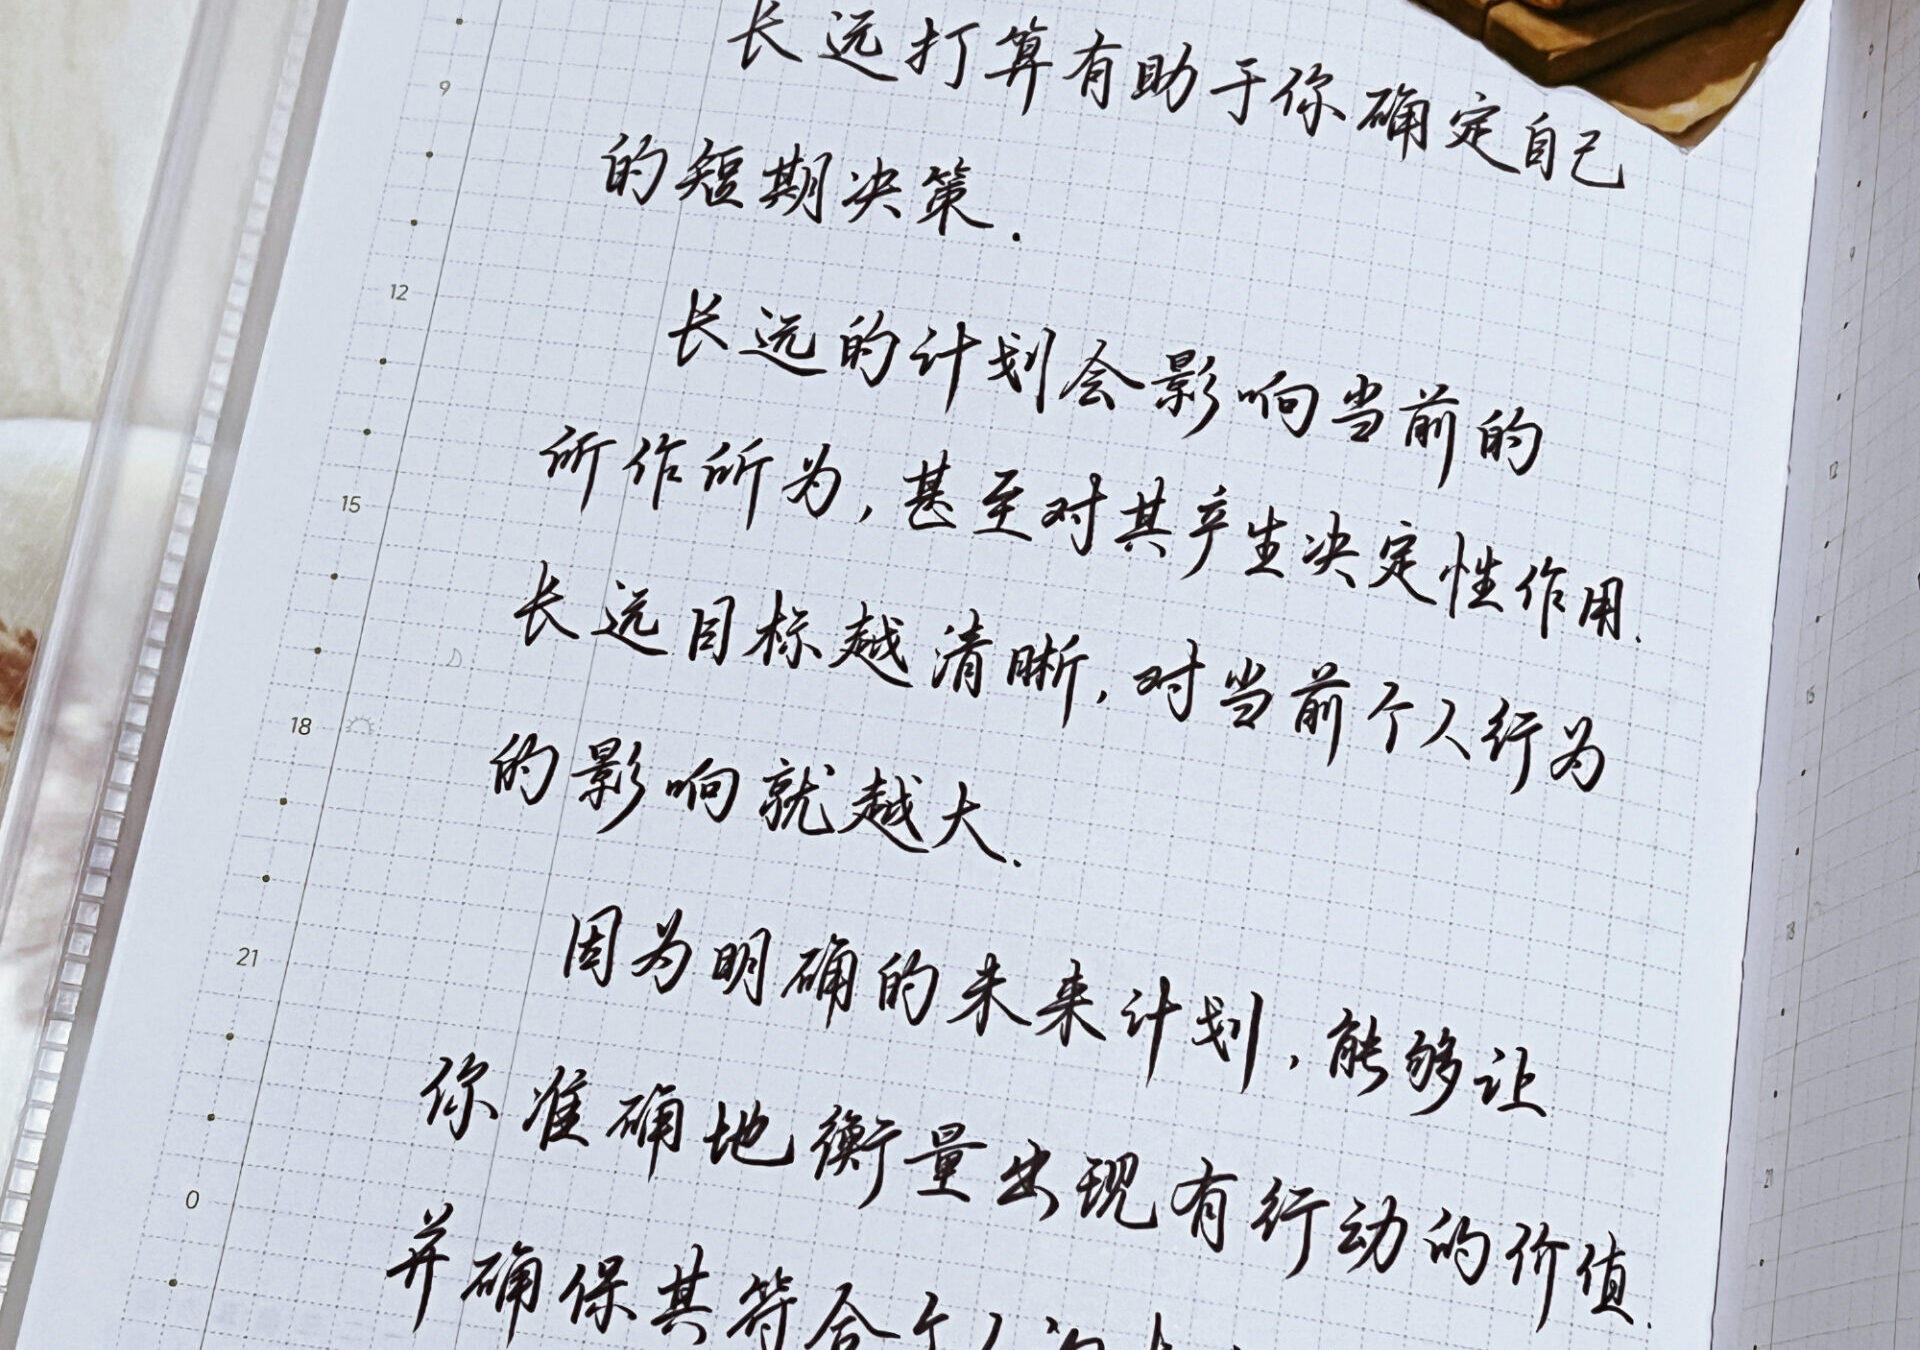 长远打算有助于你确定自己
的短期决策.
长远的计划会影响当前的
所作所为,甚至对其产生决定性作用.
长远目标越清晰,对当前个人行为
的影响就越大.
因为明确的未来计划,能够让
你准确地衡量出现有行动的价值.
并确保其符合个人
9
12
15
18
21
0